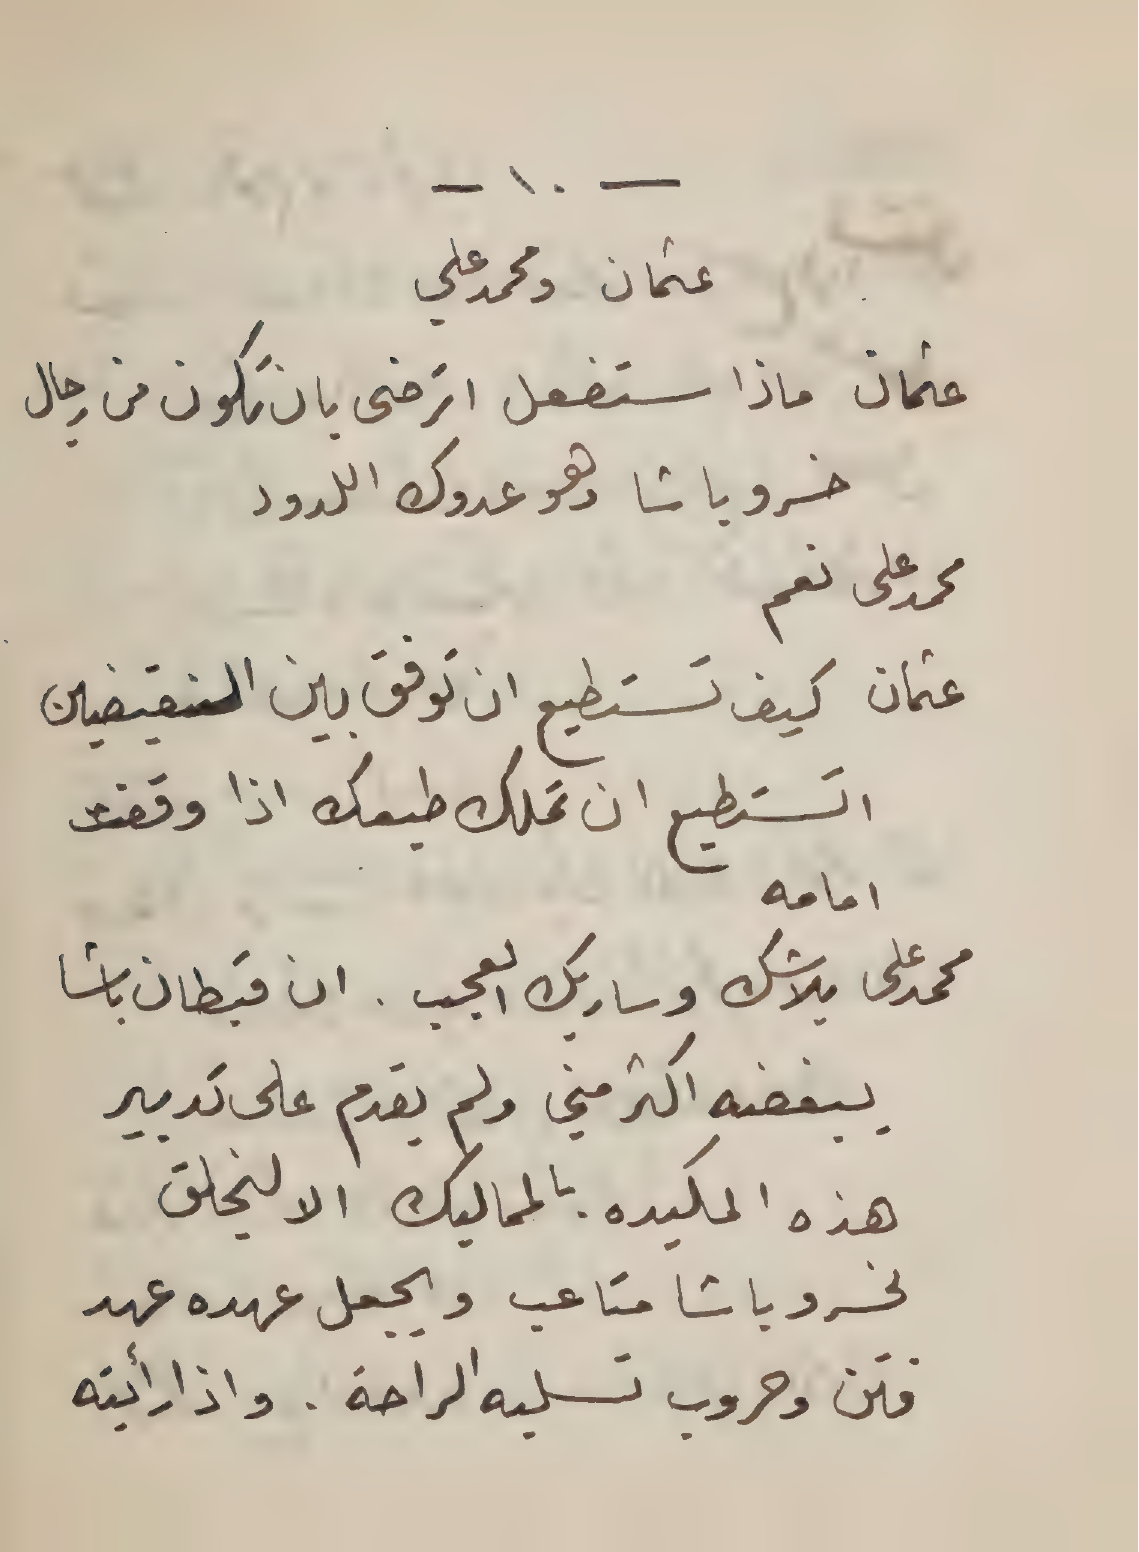 — ١٠ —
عثمان ومحمد علي
عثمان ماذا ستفعل اترضى بان تكون من رجال
خسرو باشا وهو عدوك اللدود
محمد على نعم
عثمان كيف تستطيع ان توفق بين النقيضين
اتستطيع ان تملك طبعك اذا وقفت
امامه
محمد على بلاشك وساريك العجب . ان قبطان باشا
يبغضه اكثر مني ولم يقدم على تدبير
هذه المكيده بالمماليك الا ليخلق
لخسرو باشا متاعب ويجعل عهده عهد
فتن وحروب تسلبه الراحة . واذا رأيته